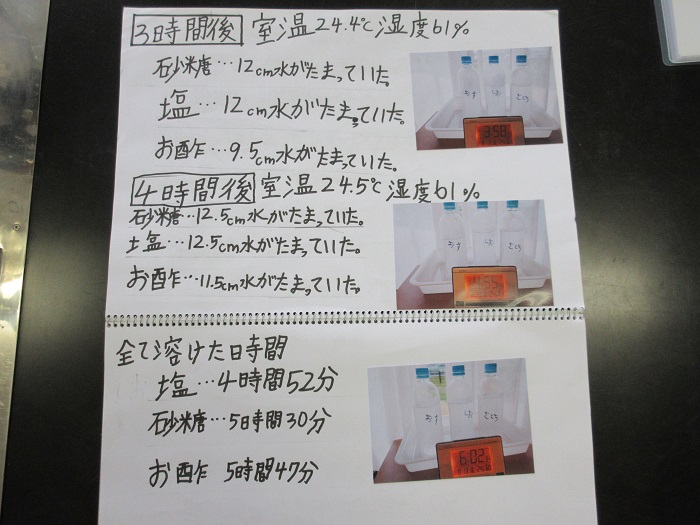 3時間後 室温24.4℃湿度61%
砂糖…12cm水がたまっていた。
塩…12cm水がたまっていた。
お酢…9.5cm水がたまっていた。
4時間後 室温24.5℃湿度61%
砂糖…12.5cm水がたまっていた。
塩…12.5cm水がたまっていた。
お酢…11.5cm水がたまっていた。
全て溶けた時間
塩…4時間52分
砂糖…5時間30分
お酢 5時間47分
おす しお さとう
3:58
おす しお さとう
おす しお さとう
6:02